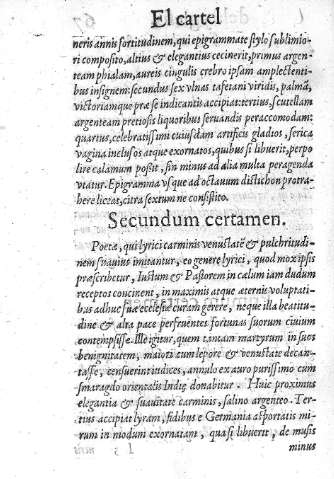 El cartel
neris annis fortitudinem, qui epigrammate stylo sublimio-
ri composito, altius & elegantius cecinerit, primus argen-
team phialam, aureis cingulis crebro ipsam amplectenti-
bus insignem: secundus sex vlnas tafetani viridis, palmā,
victoriamque præ se indicantis accipiat: tertius, scutellam
argenteam pretiosis liquoribus seruandis peraccomodam:
quartus, celebratissimi cuiusdam artificis gladios, serica
vagina inclusos atque exornatos, quibus si libuerit, perpo
lire calamum possit, sin minus ad alia multa peragenda
vtatur. Epigramma vsque ad octauum distichon protra-
here liceat, citra sextum ne consistito.
Secundum certamen.
Poetæ, qui lyrici carminis venustatē & pulchritudi-
nem suauius imitantur, eo genere lyrici, quod mox ipsis
præscribetur, Iustum & Pastorem in cælum iam dudum
receptos concinent, in maximis atque æternis voluptati-
bus adhuc suæ ecclesiæ curam gerere, neque illa beatitu-
dine & alta pace perfruentes fortunas suorum ciuium
contempsisse. Ille igitur, quem tantam martyrum in suos
benignitatem, maiori cum lepore & venustate decan-
tasse, censuerint iudices, annulo ex auro purissimo cum
smaragdo orientalis Indiæ donabitur. Huic proximus
elegantia & suauitate carminis, salino argenteo. Ter-
tius accipiat lyram, fidibus e Germania asportatis mi-
rum in modum exornatam, qua si libuerit, de musis
minus